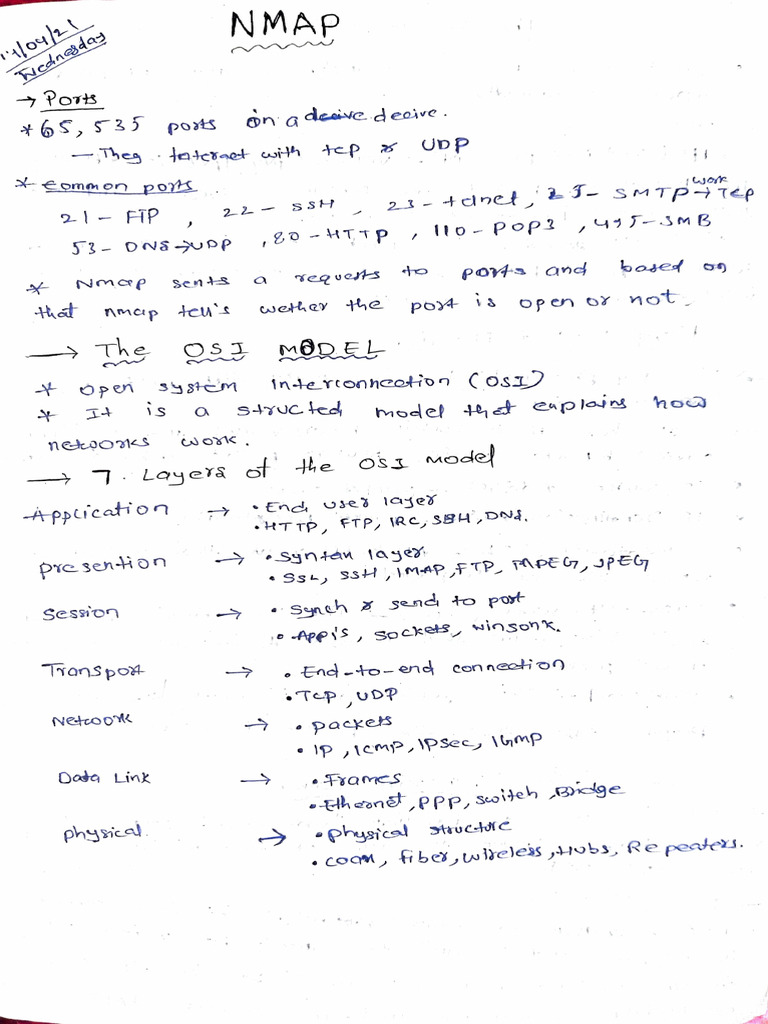 NMAP
/04/21
Wednesday
→ Ports
* 65,535 ports on a decive.
— They Interact with tcp & UDP
* common ports
work
21 - FTP , 22 - SSH , 23 - telnet , 25 - SMTP → TCP
53 - DNS → UDP , 80 - HTTP , 110 - POP3 , 445 - SMB
* Nmap sents a requests to ports and based on
that nmap tell's wether the port is open or not.
→ The OSI MODEL
* open system Interconnection (OSI)
* It is a structed model that explains how
networks work.
→ 7. Layers of the OSI model
Application → • End user layer
• HTTP, FTP, IRC, SSH, DNS.
presention → • Syntax layer
• SSL, SSH, IMAP, FTP, MPEG, JPEG
Session → • Synch & send to port
• App's, sockets, winsonk.
Transport → • End-to-end connection
• TCP, UDP
Network → • packets
• IP, ICMP, IPsec, IGMP
Data Link → • Frames
• Ethernet, PPP, switch, Bridge
physical → • physical structure
• coax, fiber, wireless, Hubs, Repeaters.